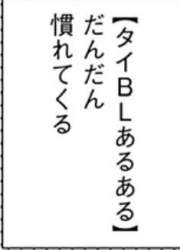 【タイBLあるある】
だんだん
慣れてくる